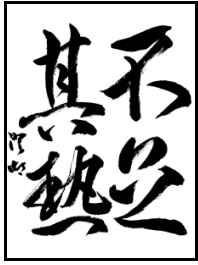 不足
其熱